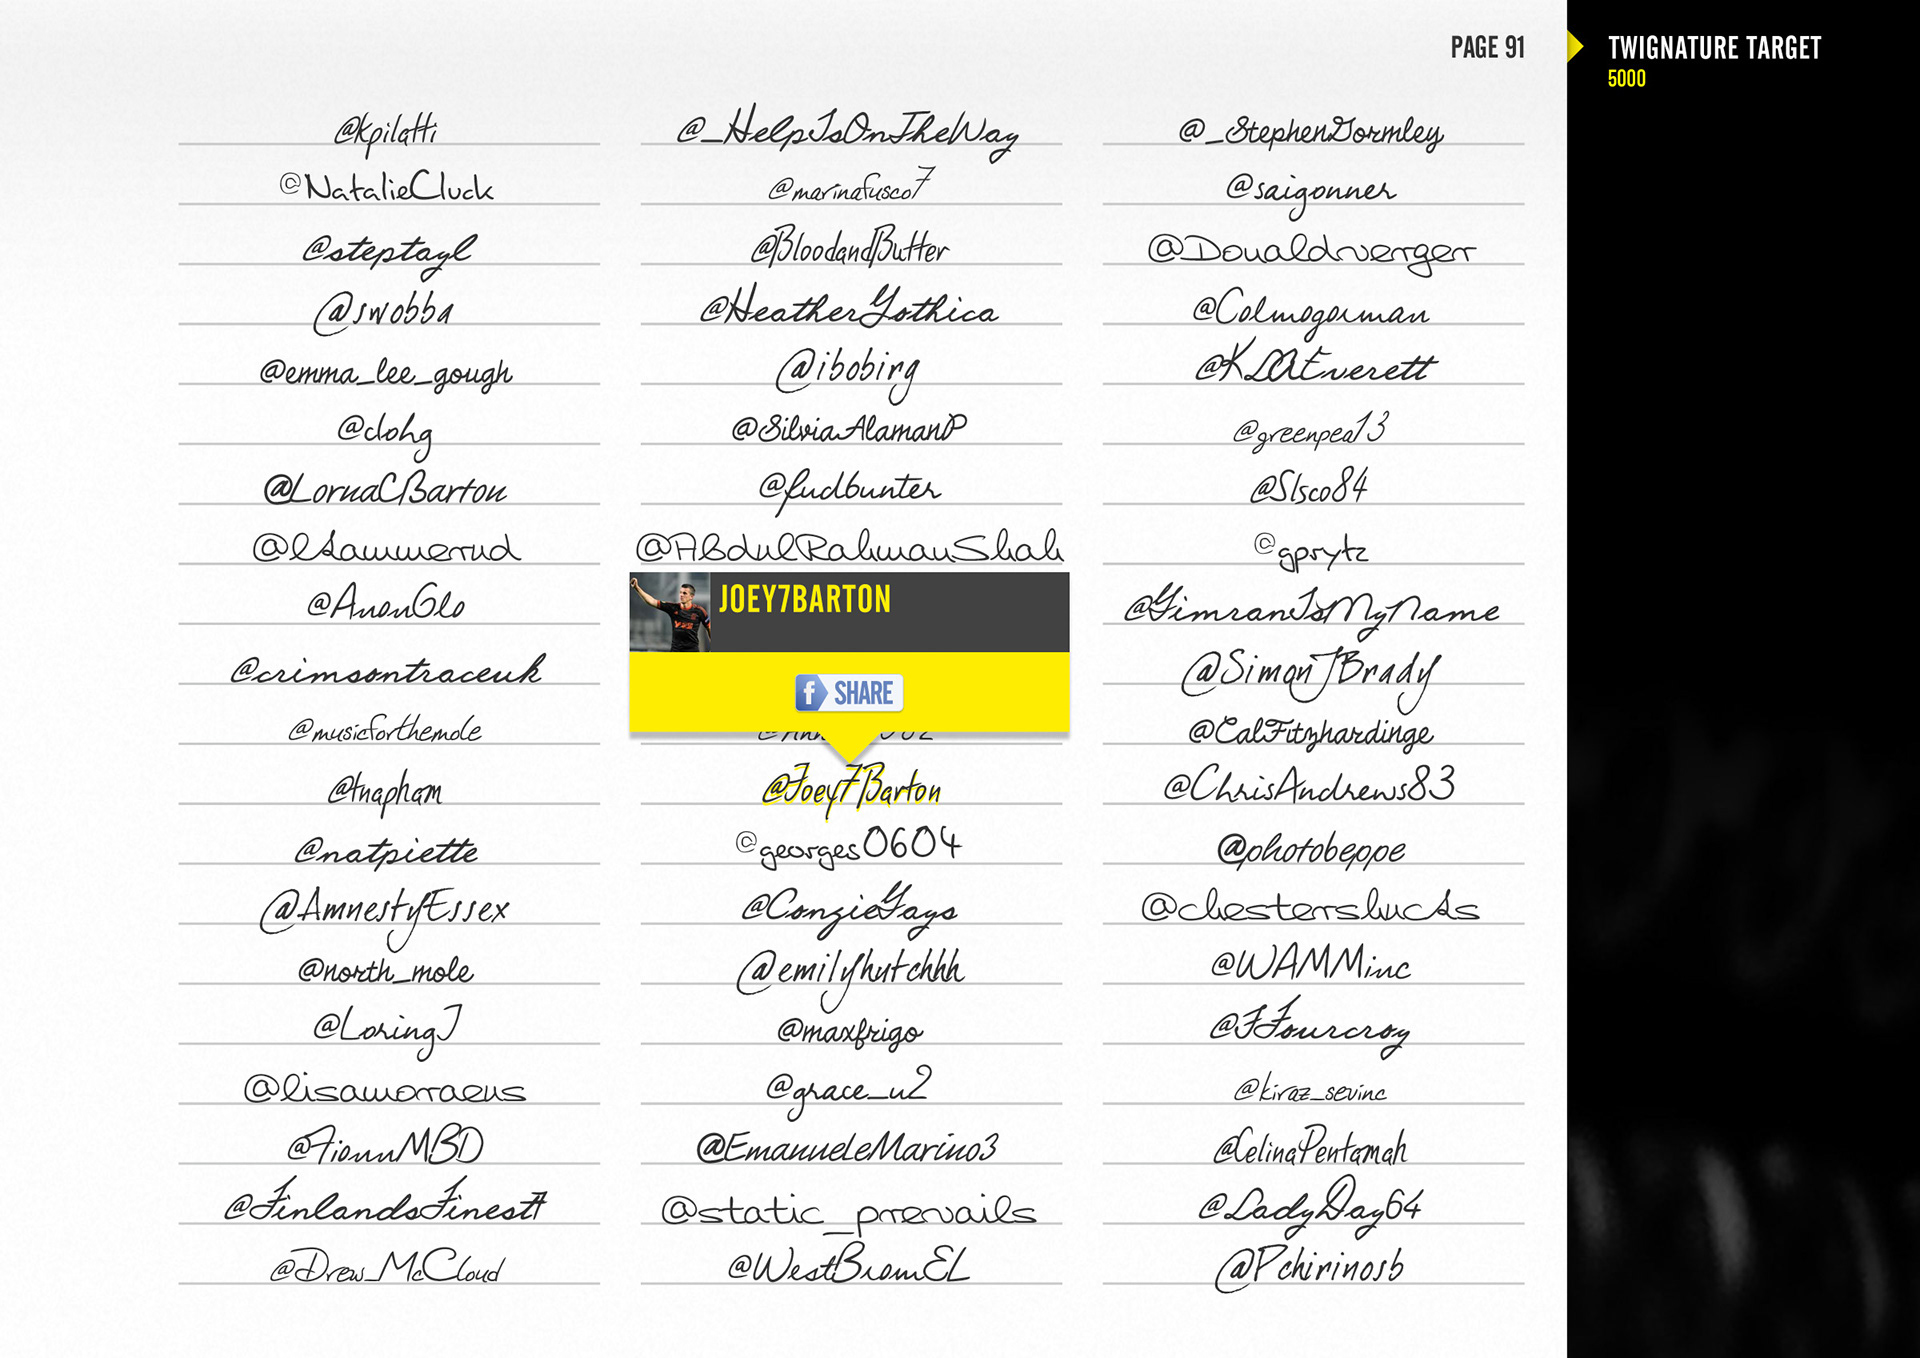 PAGE 91
TWIGNATURE TARGET
5000
@kpilatti
@NatalieCluck
@steptayl
@swobba
@emma_lee_gough
@clohg
@LornaCBarton
@lsammerud
@AnonGlo
@crimsontraceuk
@musicforthemole
@tnapham
@natpiette
@AmnestyEssex
@north_mole
@LoringJ
@lisamorraeus
@FionnMBD
@FinlandsFinestA
@Drew_McCloud
@_HelpIsOnTheWay
@marinafusco7
@BloodandButter
@HeatherGothica
@ibobirg
@SilviaAlamanP
@fudbunter
@AbdulRahmanShah
JOEY7BARTON
f SHARE
@Joey7Barton
@georges0604
@ConzieGays
@emilyhutchhh
@maxfrigo
@grace_u2
@EmanueleMarino3
@static_prevails
@WestBromEL
@_StephenGormley
@saigonner
@Donaldverger
@Colmogorman
@KDAEverett
@greenpea13
@Slsco84
@gprytz
@GimranIsMyName
@SimonJBrady
@CalFitzhardinge
@ChrisAndrews83
@photobeppe
@chestersbucks
@WAMMinc
@FFourcroy
@kiraz_sevinc
@CelinaPentamah
@LadyDay64
@Pchirinosb